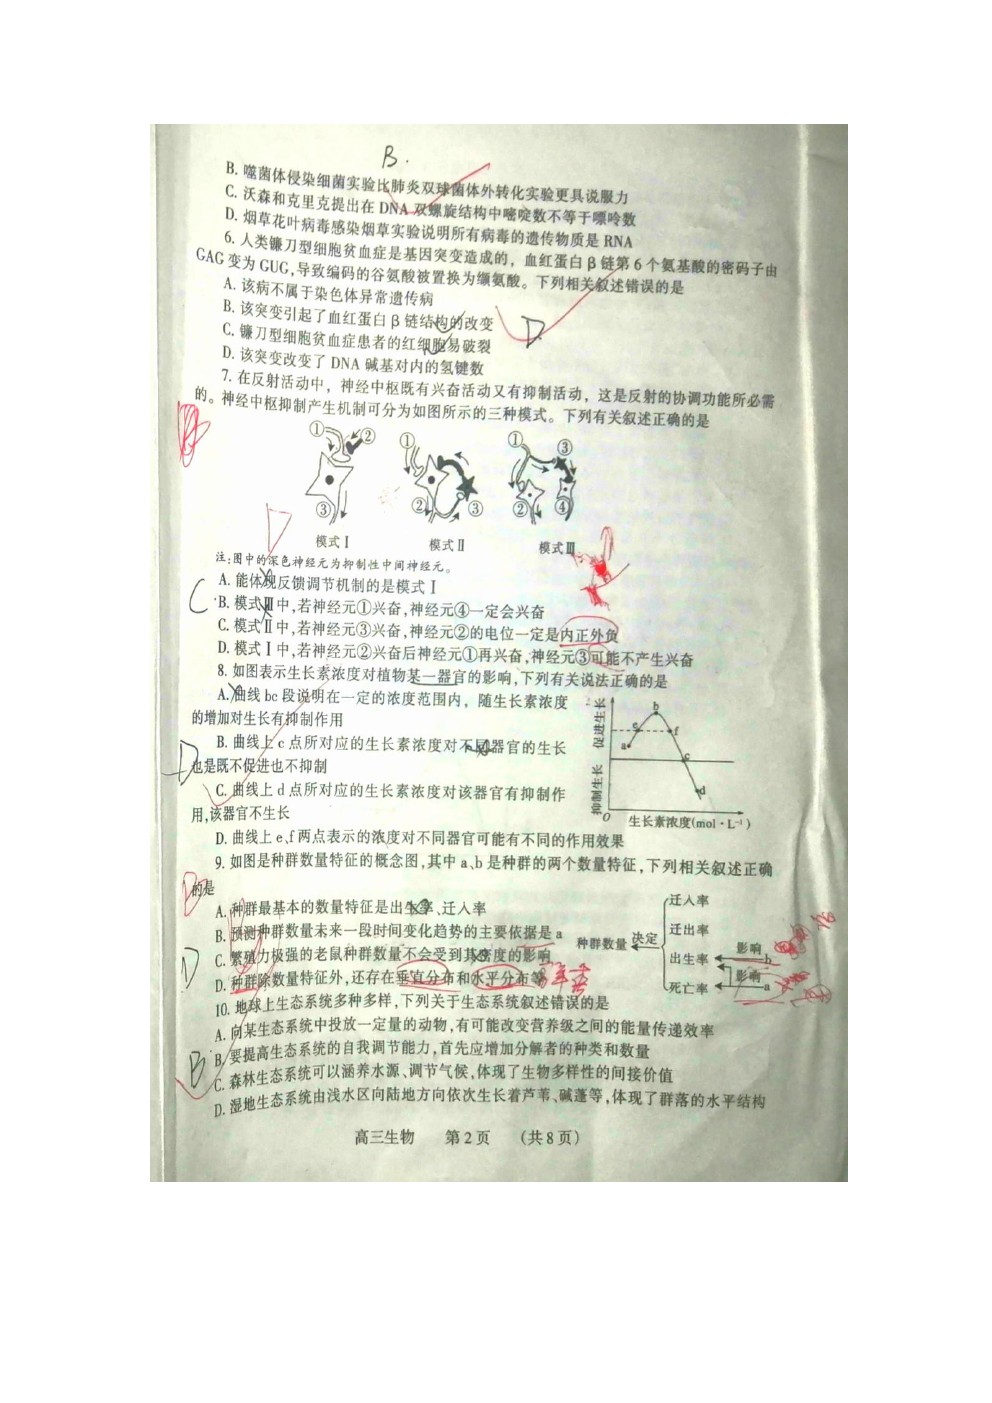 B.
B. 噬菌体侵染细菌实验比肺炎双球菌体外转化实验更具说服力
C. 沃森和克里克提出在 DNA 双螺旋结构中嘧啶数不等于嘌呤数
D. 烟草花叶病毒感染烟草实验说明所有病毒的遗传物质是 RNA
6. 人类镰刀型细胞贫血症是基因突变造成的，血红蛋白 β 链第 6 个氨基酸的密码子由
GAG 变为 GUG,导致编码的谷氨酸被置换为缬氨酸。下列相关叙述错误的是
A. 该病不属于染色体异常遗传病
B. 该突变引起了血红蛋白 β 链结构的改变
C. 镰刀型细胞贫血症患者的红细胞易破裂
D. 该突变改变了 DNA 碱基对内的氢键数
D.
7. 在反射活动中，神经中枢既有兴奋活动又有抑制活动，这是反射的协调功能所必需
的。神经中枢抑制产生机制可分为如图所示的三种模式。下列有关叙述正确的是
① ② ③
① ② ③
① ③ ② ④
模式Ⅰ 模式Ⅱ 模式Ⅲ
注:图中的深色神经元为抑制性中间神经元。
D
A. 能体现反馈调节机制的是模式Ⅰ
C
B. 模式Ⅲ中,若神经元①兴奋,神经元④一定会兴奋
C. 模式Ⅱ中,若神经元③兴奋,神经元②的电位一定是内正外负
D. 模式Ⅰ中,若神经元②兴奋后神经元①再兴奋,神经元③可能不产生兴奋
8. 如图表示生长素浓度对植物某一器官的影响,下列有关说法正确的是
A. 曲线 bc 段说明在一定的浓度范围内，随生长素浓度
的增加对生长有抑制作用
B. 曲线上 c 点所对应的生长素浓度对不同器官的生长
也是既不促进也不抑制
D
C. 曲线上 d 点所对应的生长素浓度对该器官有抑制作
用,该器官不生长
促进生长
抑制生长
a b c d e f
O
生长素浓度(mol·L⁻¹)
D. 曲线上 e,f 两点表示的浓度对不同器官可能有不同的作用效果
9. 如图是种群数量特征的概念图,其中 a、b 是种群的两个数量特征,下列相关叙述正确
的是
B
A. 种群最基本的数量特征是出生率、迁入率
B. 预测种群数量未来一段时间变化趋势的主要依据是 a
C. 繁殖力极强的老鼠种群数量不会受到其密度的影响
D
D. 种群除数量特征外,还存在垂直分布和水平分布等
种群数量 决定
迁入率
迁出率
出生率 影响 b
死亡率 影响 a
10. 地球上生态系统多种多样,下列关于生态系统叙述错误的是
A. 向某生态系统中投放一定量的动物,有可能改变营养级之间的能量传递效率
B. 要提高生态系统的自我调节能力,首先应增加分解者的种类和数量
B
C. 森林生态系统可以涵养水源、调节气候,体现了生物多样性的间接价值
D. 湿地生态系统由浅水区向陆地方向依次生长着芦苇、碱蓬等,体现了群落的水平结构
高三生物 第 2 页 (共 8 页)